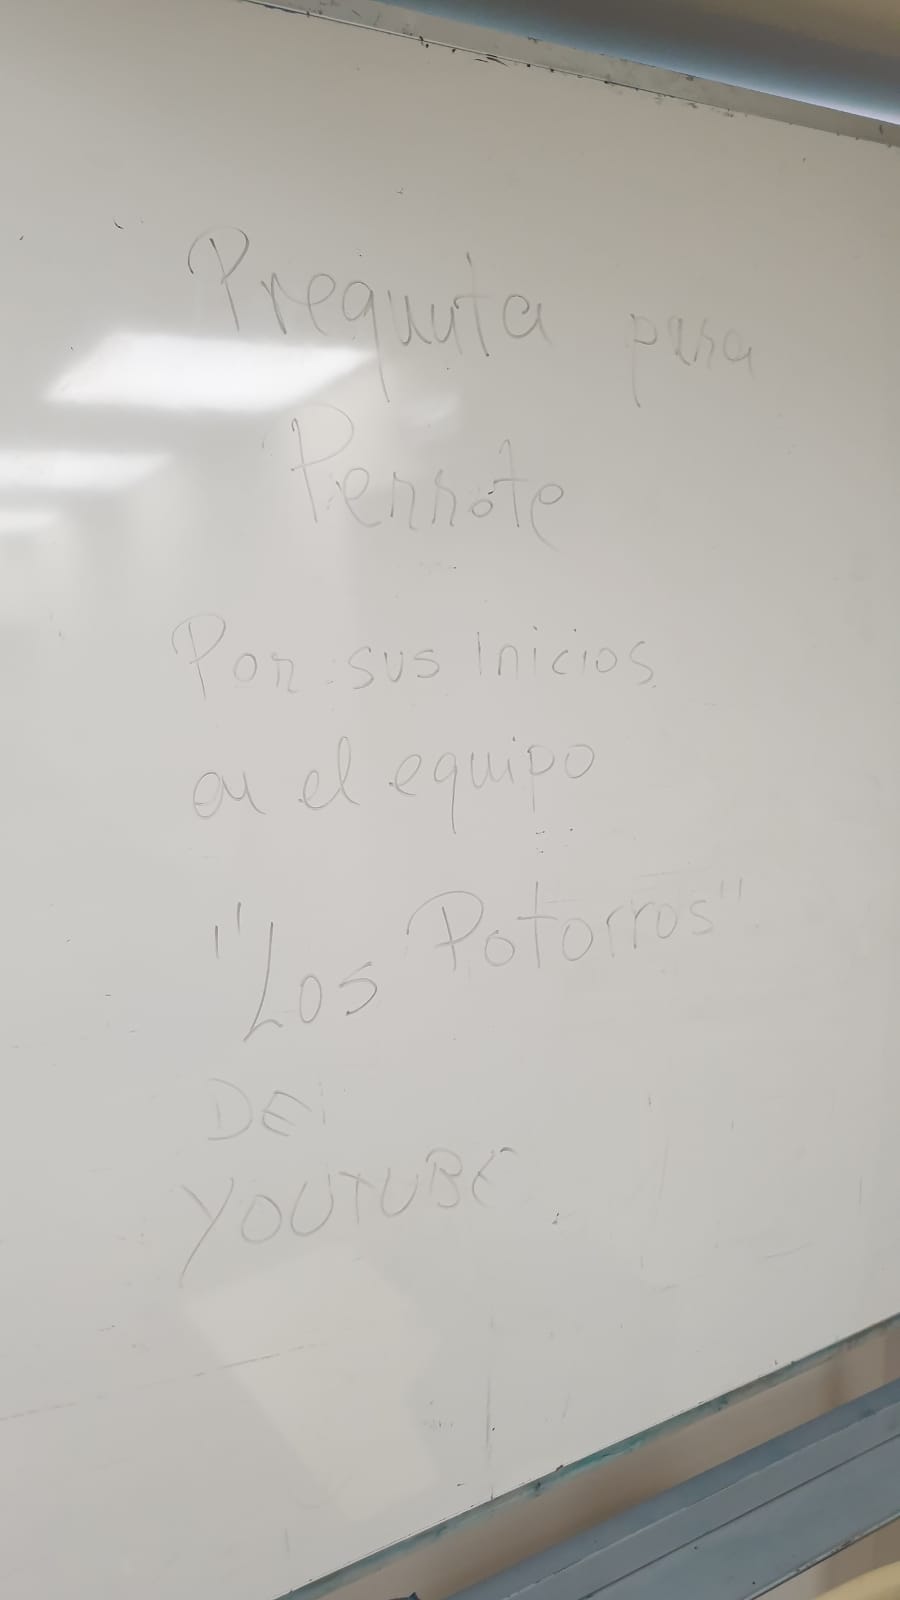 Pregunta para
Perrote
Por sus inicios
en el equipo
"Los Potorros"
DEL
YOUTUBE